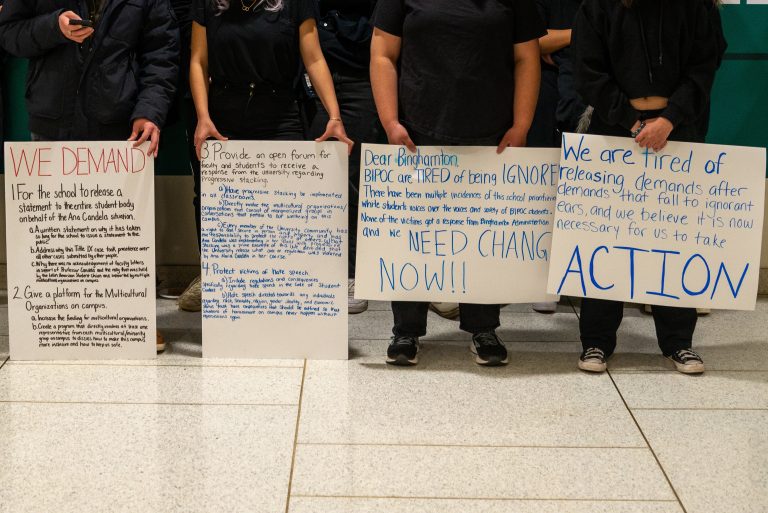 WE DEMAND
1 For the school to release a
statement to the entire student body
on behalf of the Ana Candela situation.
a. A written statement on why it has taken
so long for the school to issue a statement to the
public
b. Address why this Title IX case took precedence over
all other cases submitted by other people.
c. Why there was no acknowledgement of faculty letters
in support of Professor Candela and the rally that was held
by the Latin American Student Union and supported by multiple
multicultural organizations on campus.
2. Give a platform for the Multicultural
Organizations on campus.
a. Increase the funding for multicultural organizations.
b. Create a program that directly involves at least one
representative from each multicultural/minority
group on campus to discuss how to make this campus
more inclusive and how to keep us safe.
3 Provide an open forum for
faculty and students to receive a
response from the university regarding
Progressive Stacking.
a) Have progressive stacking be implemented
in all classrooms.
b) Directly involve the multicultural organizations/
organizations that consist of marginalized groups in
conversations that
c) Every member of the University community has
a right to
the responsibility to protect the
Ana Candela was implementing in her
Stacking was
the University release what law or regulations that were violated
by Ana Maria Candela in her course.
4 Protect victims of Hate speech
a) Include regulations and consequences
specifically regarding hate speech in the Code of Student
Conduct
b) Hate speech directed towards any individuals
regarding race, sexuality, religion, gender identity, and economic
status
of harassment on campus never happen without
repercussions again.
Dear Binghamton,
BIPOC are TIRED of being IGNORE
There have been multiple incidences of this school prioritizing
white students voices over the voices and safety of BIPOC students.
None of the victims got a response from Binghamton Administration
and we NEED CHANG
NOW!!
We are TIRED of
releasing demands after
demands that fall to ignorant
ears, and we believe it is now
necessary for us to take
ACTION